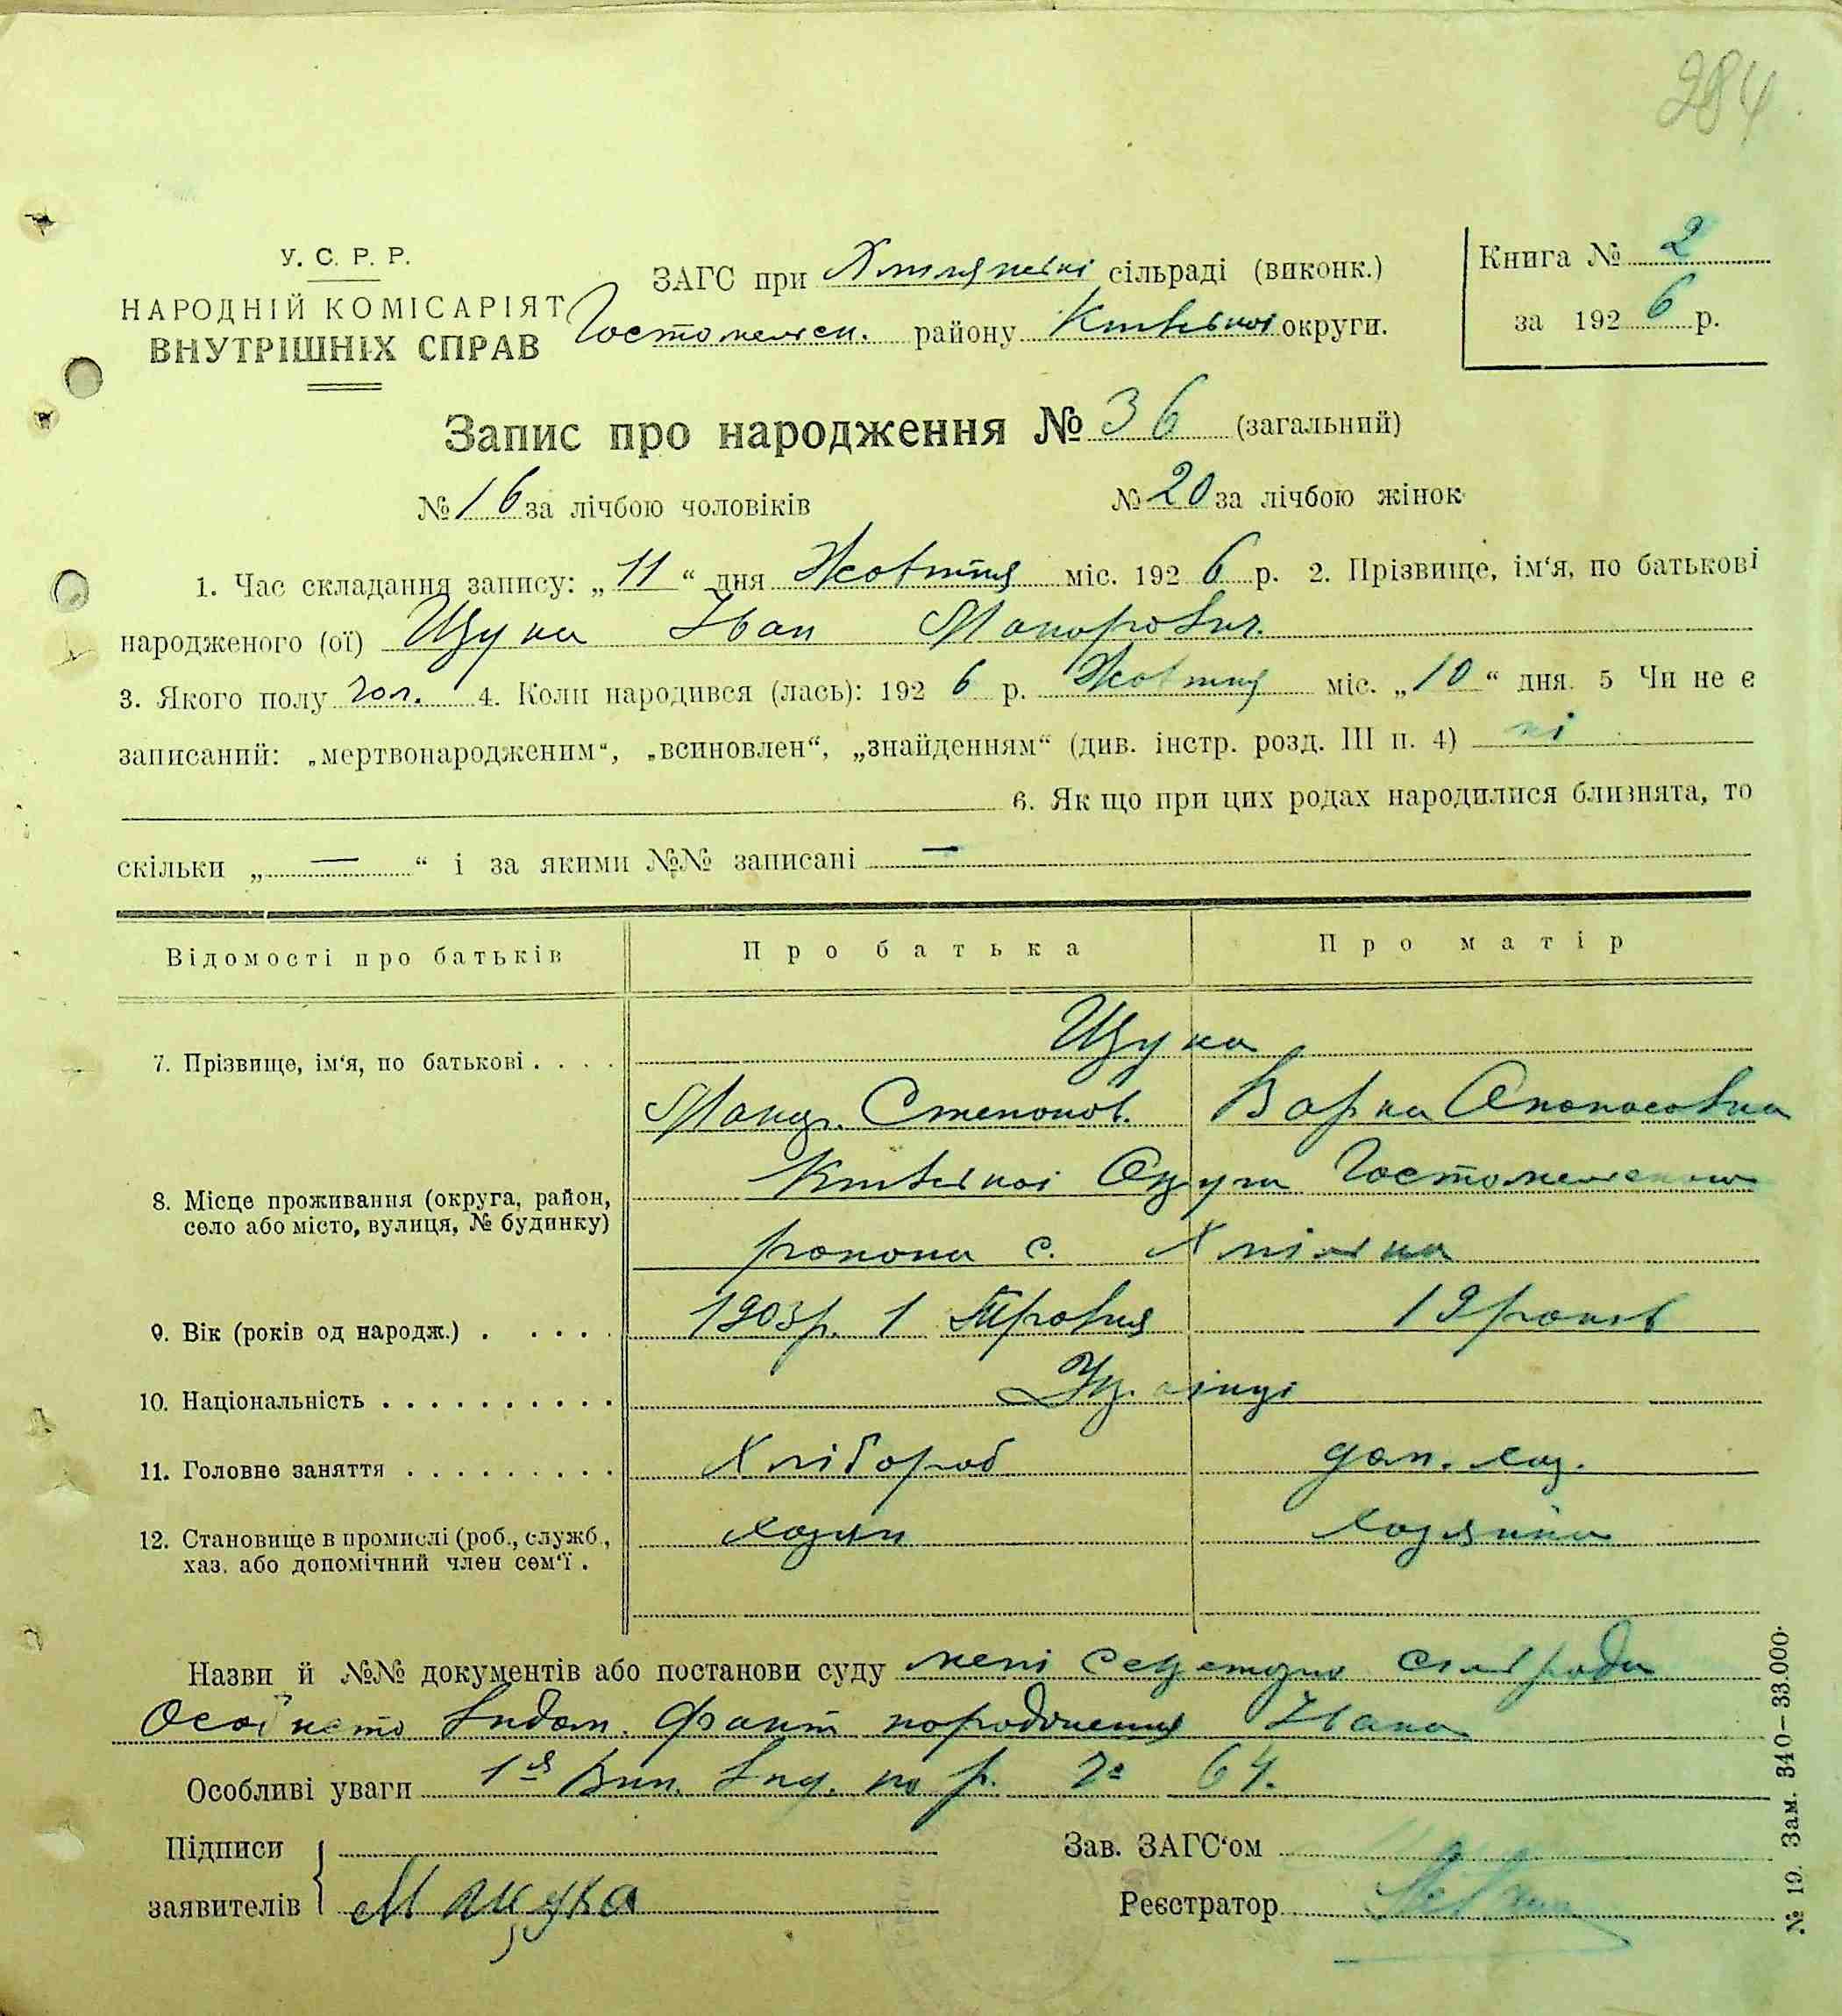 284
У. С. Р. Р.
НАРОДНІЙ КОМІСАРІЯТ
ВНУТРІШНІХ СПРАВ
ЗАГС при сільраді (виконк.)
Гостомельск. району Київської округи.
Книга № 2
за 1926 р.
Запис про народження № 36 (загальний)
№ 16 за лічбою чоловіків № 20 за лічбою жінок
1. Час складання запису: „11“ дня Жовтня міс. 1926 р. 2. Прізвище, ім‘я, по батькові
народженого (ої) Щука Іван Макарович.
3. Якого полу чол. 4. Коли народився (лась): 1926 р. Жовтня міс. „10“ дня. 5 Чи не є
записаний: „мертвонародженим“, „всиновлен“, „знайденням“ (див. інстр. розд. III п. 4) ні
6. Як що при цих родах народилися близнята, то
скільки „—“ і за якими №№ записані —
Відомості про батьків Про батька Про матір
7. Прізвище, ім‘я, по батькові . . . . Щука
Макар. Степанов. Варка Опанасовна
8. Місце проживання (округа, район, село або місто, вулиця, № будинку) Київської Округи Гостомельского
района с.
9. Вік (років од народж.) . . . . . 1903р. 1 Травня 19 років
10. Національність . . . . . . . . . . Українці
11. Головне заняття . . . . . . . . . Хлібороб дом. хаз.
12. Становище в промислі (роб., служб., хаз. або допомічний член сем‘ї . хазяїн хазяйка
Назви й №№ документів або постанови суду мені Секретарю сільради
Особисто відом. факт народження Івана
Особливі уваги 1я Вип. вид. по р. № 64.
Підписи
заявителів М Щука
Зав. ЗАГС‘ом
Реєстратор
№ 19. Зам. 340–33.000.